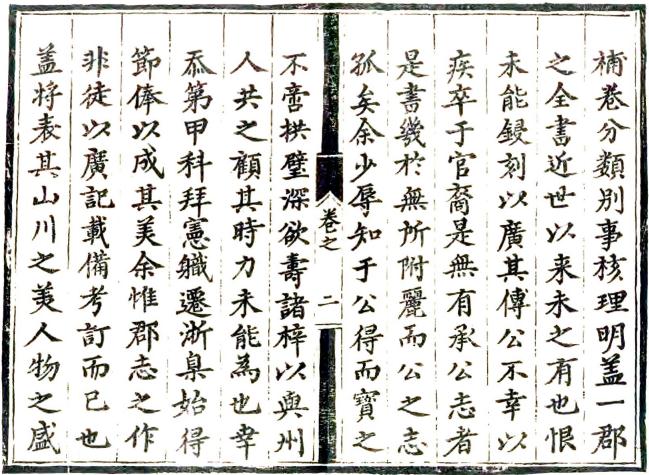 補卷分類別事核理明盖一郡
之全書近世以来未之有也恨
未能鋟刻以廣其傳公不幸以
疾卒于官裔是無有承公志者
是書幾於無所附麗而公之志
孤矣余少辱知于公得而寶之
卷之
二
不啻拱璧深欲壽諸梓以與州
人共之顧其時力未能為也幸
忝第甲科拜憲軄遷浙臬始得
節俸以成其美余惟郡志之作
非徒以廣記載備考訂而已也
盖将表其山川之美人物之盛